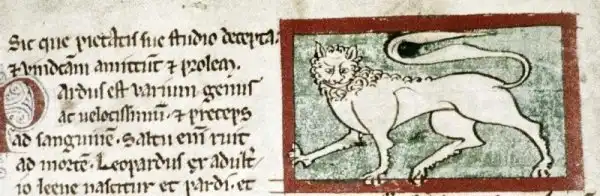 Sic que pietatis sue studio decepta
⁊ vindictam amittit ⁊ prolem.
Pardus est varium genus
ac velocissimum. ⁊ preceps
ad sanguinē. Saltu enī ruit
ad mortē. Leopardus ex adult̾
io leene nascitur et pardi. et